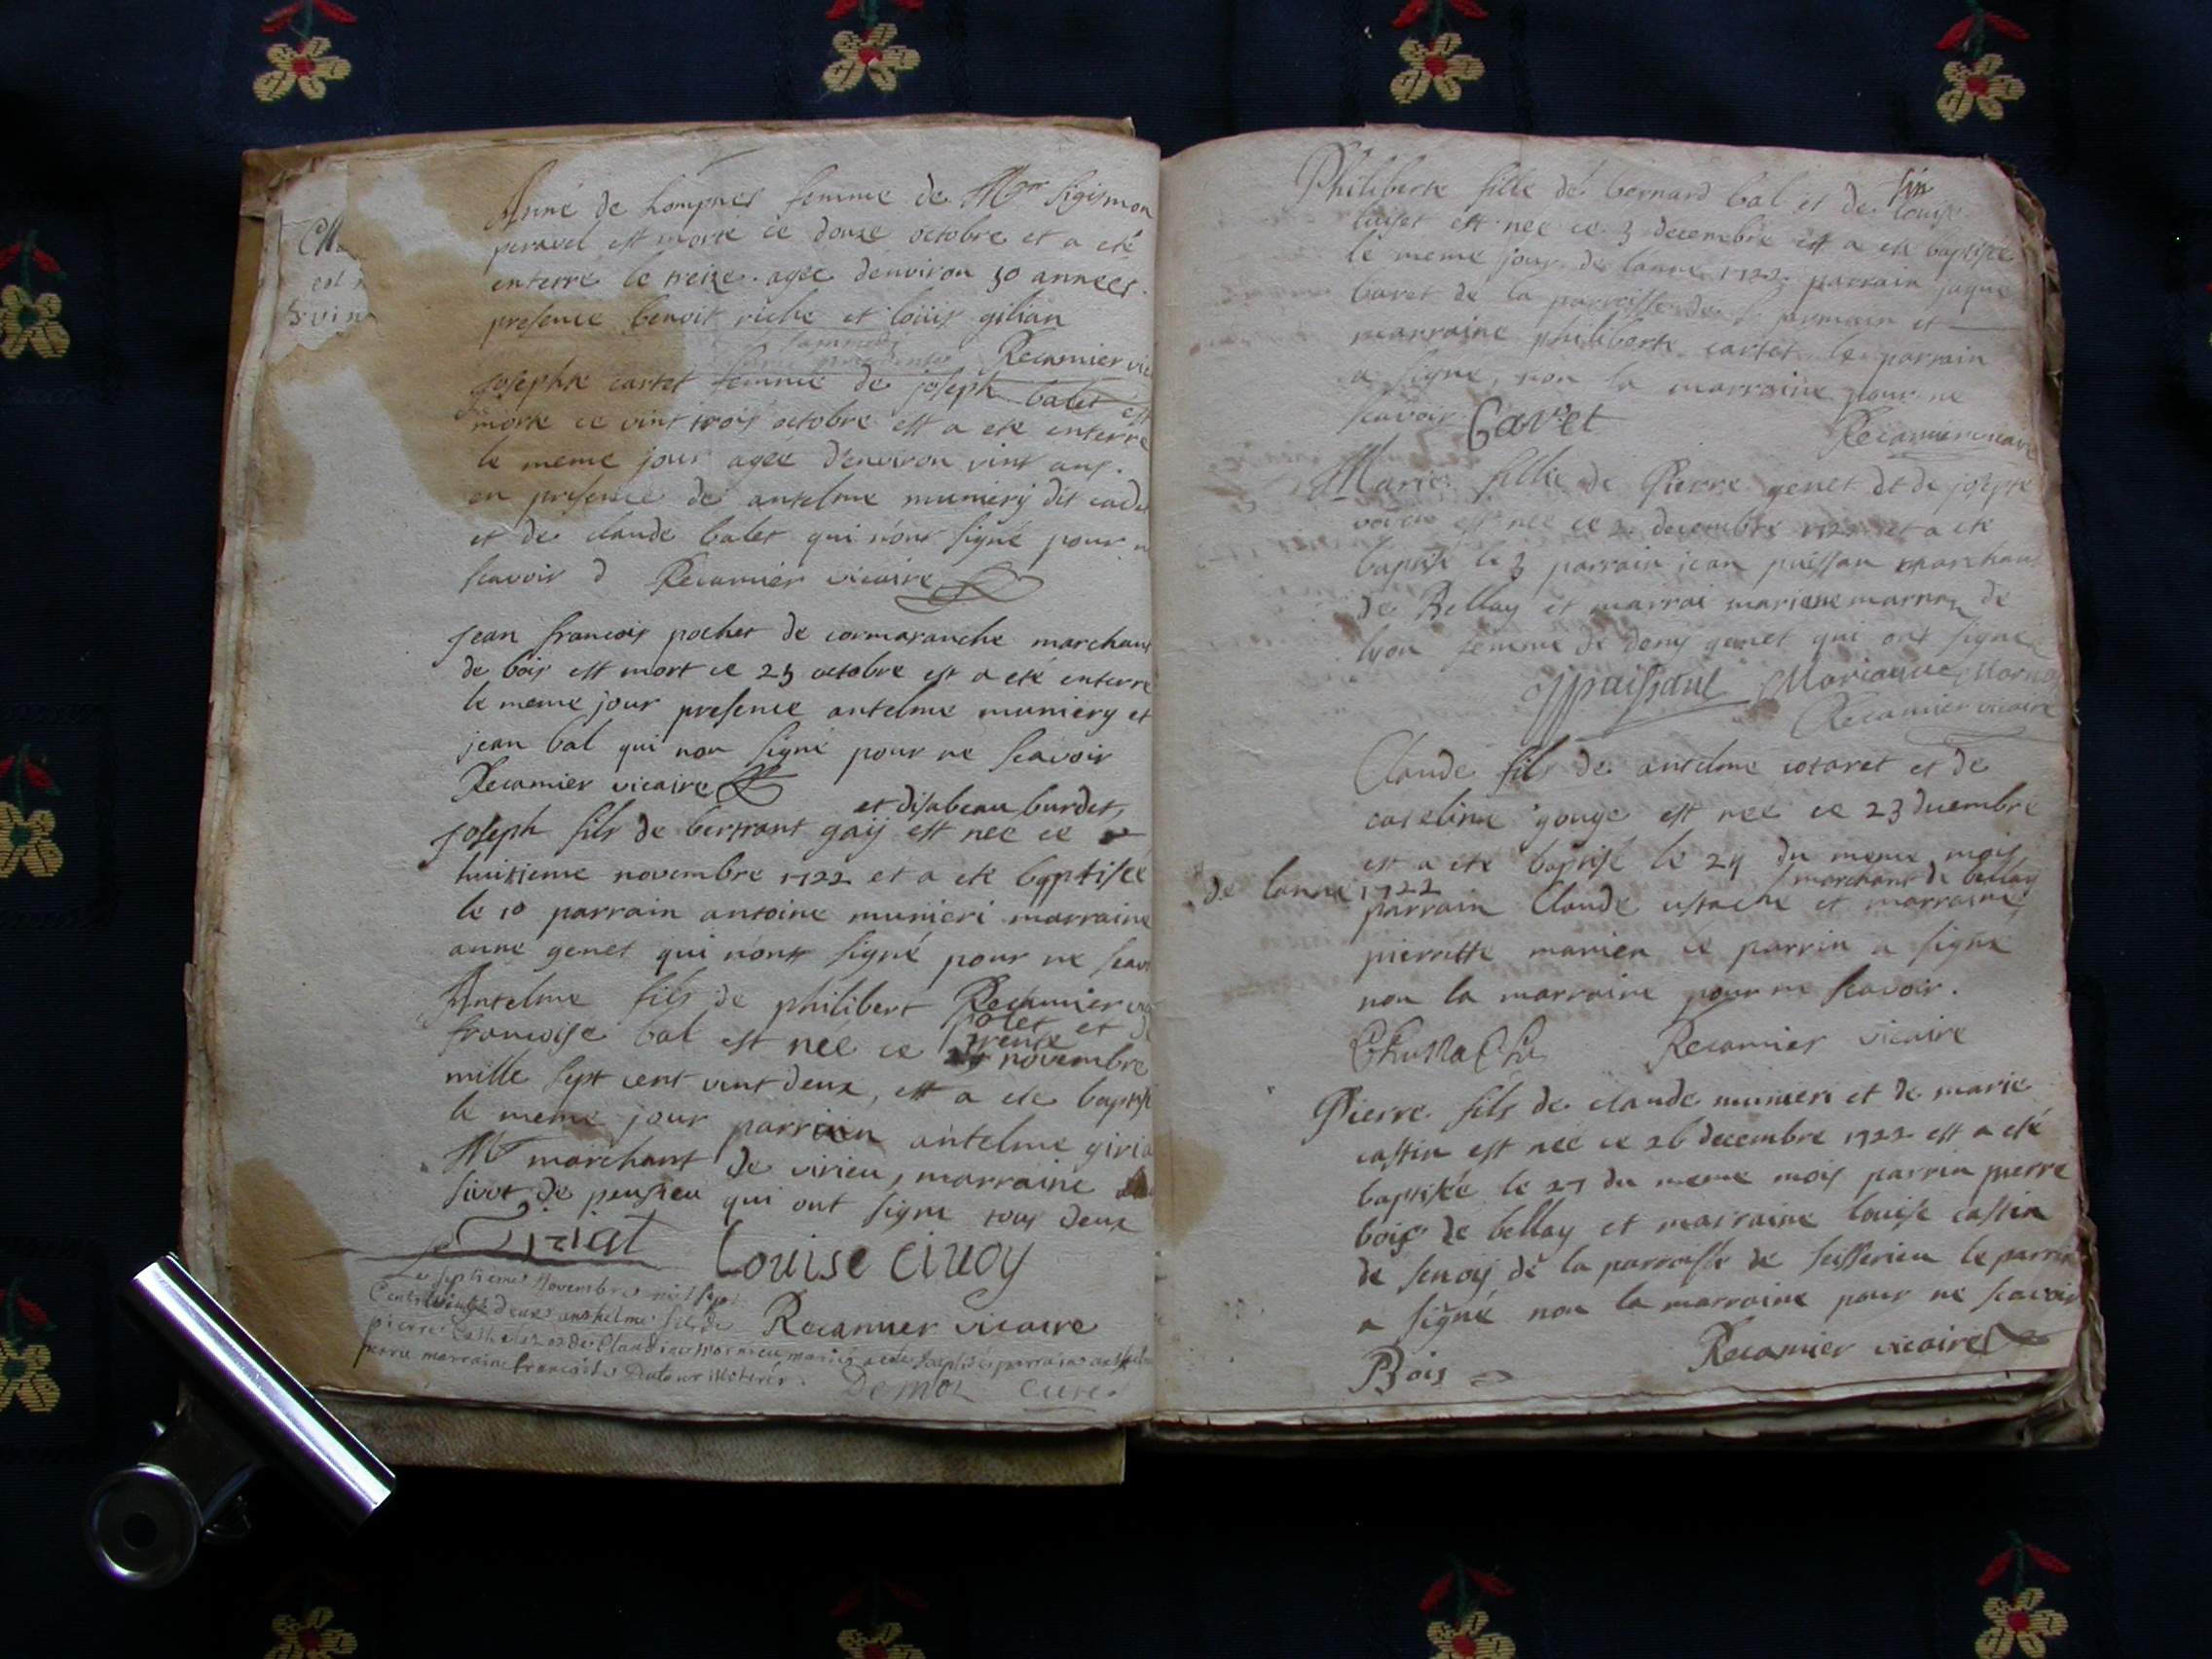 Anne de Lompnes femme de Mr Sigismon
peravel est morte ce douze octobre et a eté
enterré le treize agee denviron 50 années
presence benoit riche et loüis gilian
Recamier vic
Josephte cartet femme de joseph balet est
morte ce vint trois octobre est a ete enterré
le meme jour agee denviron vint ans.
en presence de antelme muniery dit cade
et de claude balet qui nont signé pour n
scavoir Recamier vicaire
Jean francois pochet de cormaranche marchant
de bois est mort ce 25 octobre est a eté enterré
le meme jour presence antelme muniery et
jean bal qui non signé pour ne scavoir
Recamier vicaire
et disabeau burdet,
Joseph fils de bertrant gaÿ est nee ce
huitieme novembre 1722 et a ete baptisée
le 10 parrain antoine munieri marraine
anne genet qui nont signé pour ne scav
Recamier
Antelme fils de philibert polet et d
francoise bal est neé ce trente novembre
mille sept cent vint deux, est a ete baptis
le meme jour parrain antelme giria
Mr marchant de virieu, marraine
sivot de peusieu qui ont signe tous deux
Girial Louise Civoy
Le septieme Novembre mil sept
Cents vingt deux anthelme fils de
pierre et de Claudine marieu mariés a ete baptisé parrain anthelm
pierre marraine francoise
Recamier vicaire
Demoz Curé
Philiberte fille de bernard bal et de louise
luiset est neé ce 3 decembre est a ete baptisée
le meme jour de lanne 1722 parrain jaque
bavet de la parroisse de s. germain et
marraine philiberte cartet le parrain
a signe, non la marraine pour ne
scavoir Bavet
Recamier vicaire
Marie fillie de Pierre genet et de josepte
est neé ce 2 decembre 1722 et a ete
baptisé le 3 parrain jean puissan marchant
de Bellay et marrai mariane marnan de
lyon femme de deny genet qui ont signe
Marianne Marna
Recamier vicaire
Claude fils de antelme cotaret et de
cateline gouge est neé ce 23 decembre
est a ete baptisé le 24 du meme mois
de lanné 1722 marchant de bellay
parrain Claude ustache et marraine
pierrette marieu le parrin a signé
non la marraine pour ne scavoir.
Recamier vicaire
Pierre fils de claude munieri et de marie
castin est neé ce 26 decembre 1722 est a eté
baptisée le 27 du meme mois parrin pierre
bois de bellay et marraine louise castin
de senoy de la parroisse de seisserieu le parrin
a signé non la marraine pour ne scavoir
Recamier vicaire
Bois